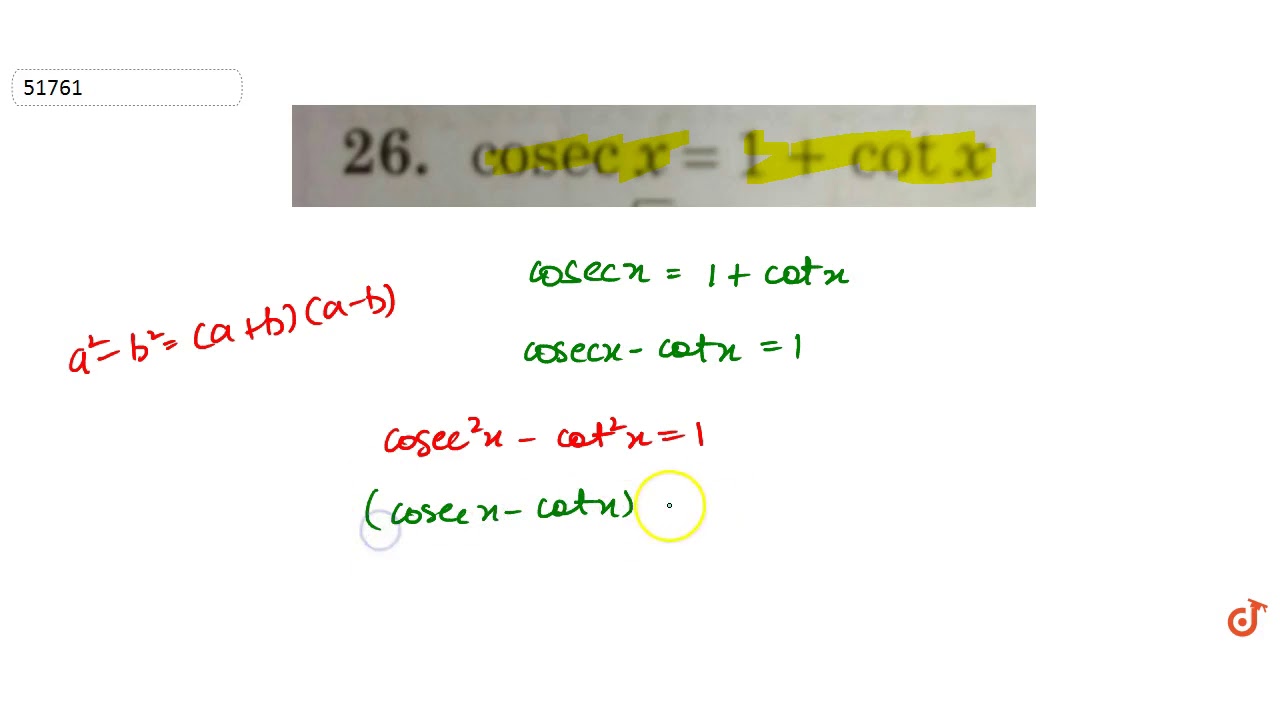 51761
26. cosec x = 1 + cot x
cosecx = 1 + cotx
a²-b²= (a+b)(a-b)
cosecx - cotx = 1
cosec²x - cot²x = 1
(cosecx - cotx)